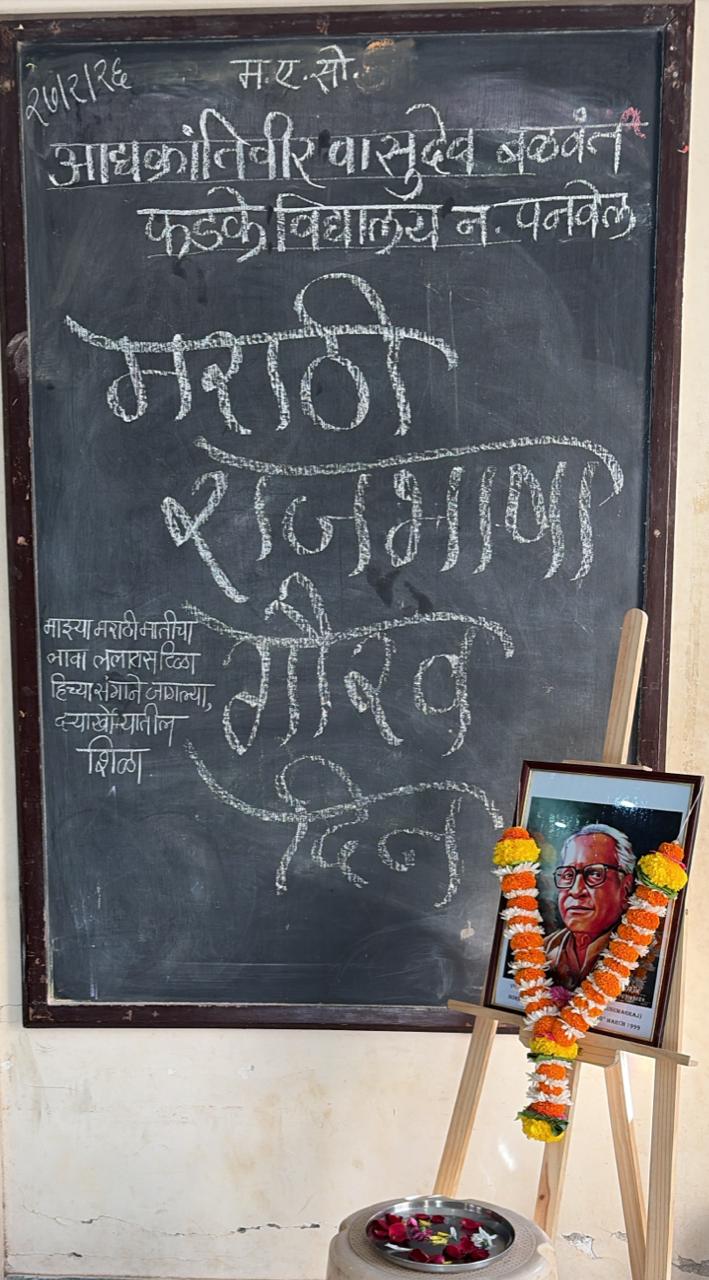 २७/२/२६
म. ए. सो.
आद्यक्रांतिवीर वासुदेव बळवंत
फडके विद्यालय न. पनवेल
मराठी
राजभाषा
गौरव
दिन
माझ्या मराठी मातीचा
लावा ललाटास टिळा
हिच्या संगाने जागल्या,
दऱ्याखोऱ्यातील
शिळा
MARCH 1999